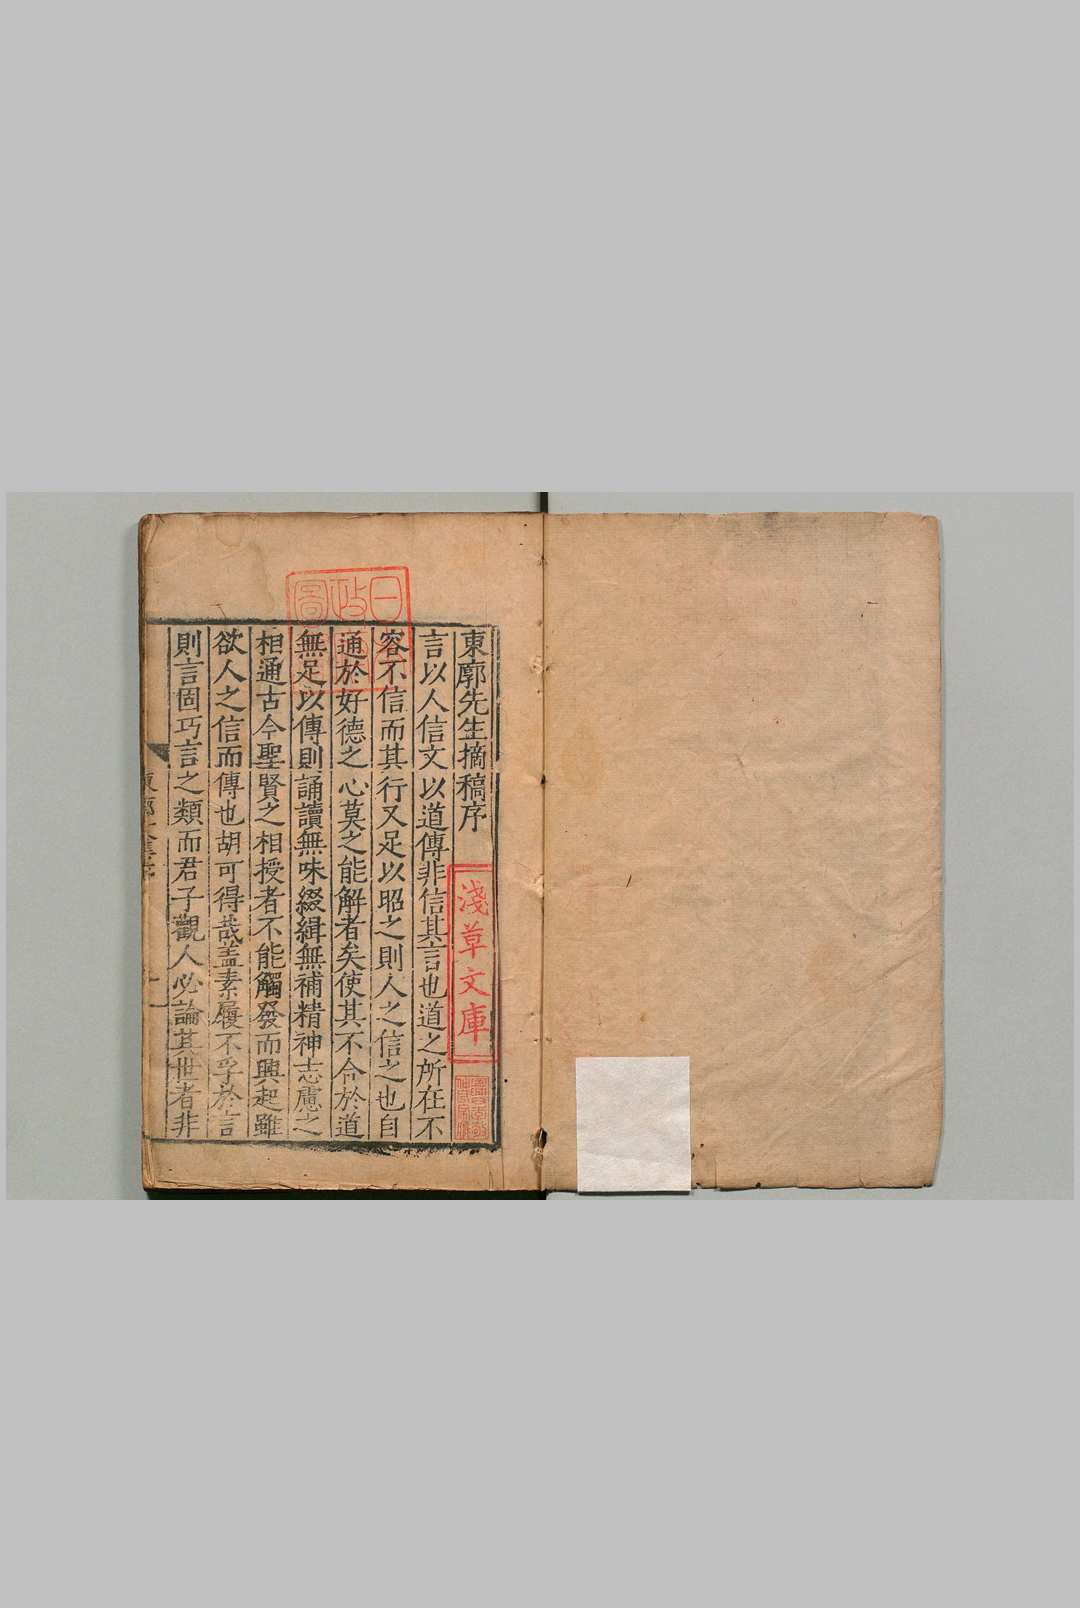 東廓先生摘稿序
言以人信文以道傳非信其言也道之所在不
容不信而其行又足以昭之則人之信之也自
通於好德之心莫之能解者矣使其不合於道
無足以傳則誦讀無味綴緝無補精神志慮之
相通古今聖賢之相授者不能觸發而興起雖
欲人之信而傳也胡可得哉盖素履不孚於言
則言固巧言之類而君子觀人必論其世者非
淺草文庫